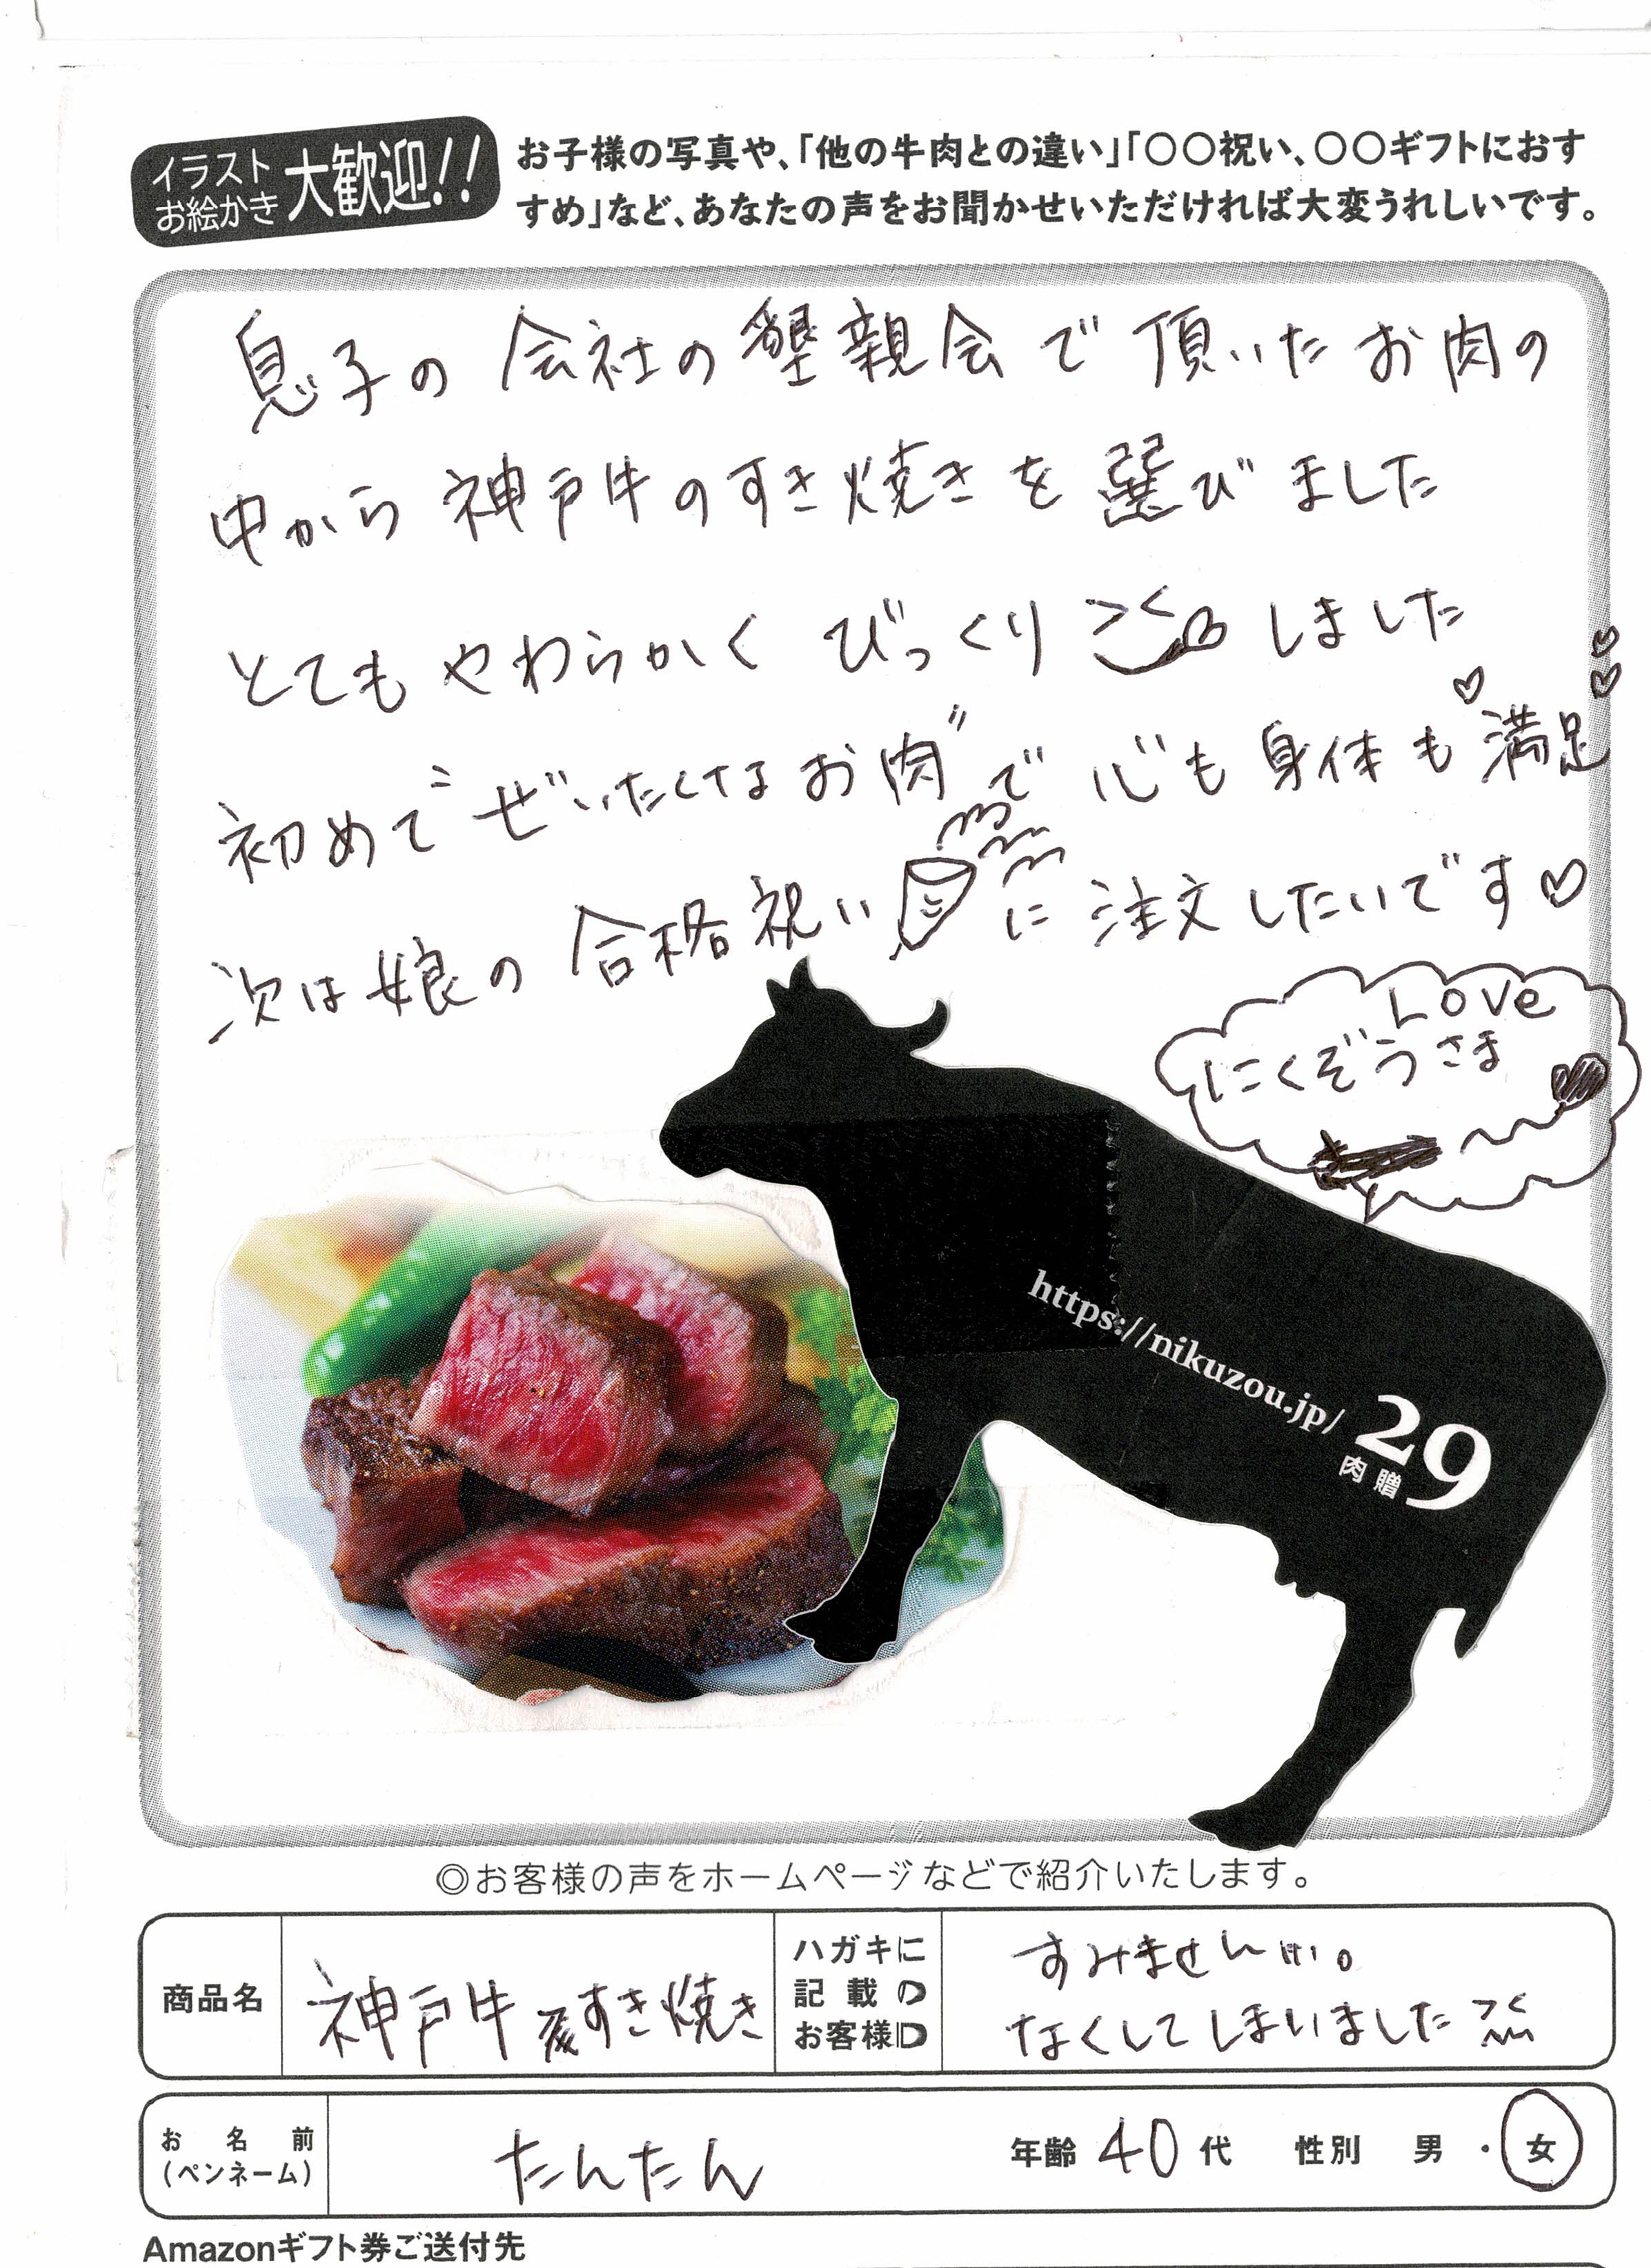 イラスト
お絵かき
大歓迎!!
お子様の写真や、「他の牛肉との違い」「〇〇祝い、〇〇ギフトにおす
すめ」など、あなたの声をお聞かせいただければ大変うれしいです。
息子の会社の懇親会で頂いたお肉の
中から神戸牛のすき焼きを選びました
とてもやわらかくびっくりしました
初めて"ぜいたくなお肉"で心も身体も満足
次は娘の合格祝いに注文したいです♡
Love
にくぞうさま
https://nikuzou.jp/
29
肉贈
◎お客様の声をホームページなどで紹介いたします。
商品名
神戸牛すき焼き
ハガキに
記載の
お客様ID
すみません…。
なくしてしまいました
お名前
(ペンネーム)
たんたん
年齢 40代 性別 男・女
Amazonギフト券ご送付先